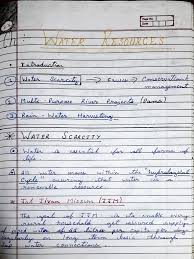 Page No.
Date
Ch: WATER RESOURCES
Introduction
① Water Scarcity → Causes → Conservation & management
② Multi-Purpose River Projects (Dams)
③ Rain-Water Harvesting
* WATER SCARCITY
Water is essential for all forms of
life
All water moves within the hydrological
Cycle ensuring that water is a
renewable resource
* Jal Jeevan Mission (JJM)
The goal of JJM is to enable every
rural household get assured supply
of water
basis through
Water connections